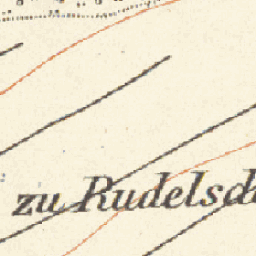 zu Rudelsd